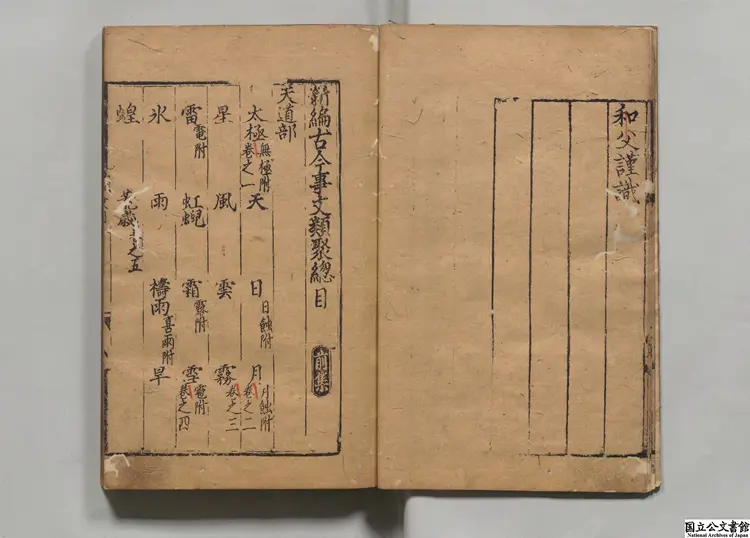 和父謹識
新編古今事文類聚總目 前集
天道部
太極無極附卷之一 天 日日蝕附 月月蝕附卷之二
星 風 雲 霧卷之三
雷電附 虹蜺 霜露附 雪雹附卷之四
氷 雨 禱雨喜雨附 旱
蝗 卷之五
国立公文書館
National Archives of Japan